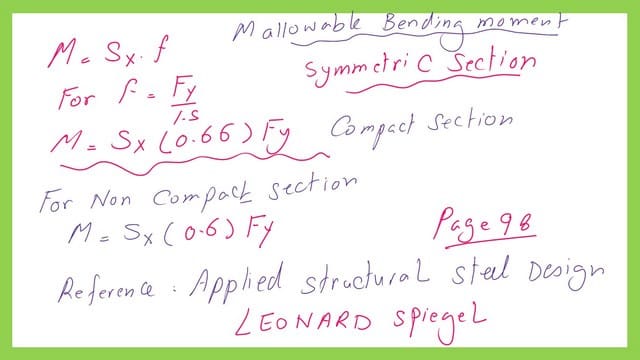 M allowable Bending moment
M = Sx . f
symmetric section
For f = Fy/1.5
M = Sx (0.66) Fy Compact section
For Non Compact section
M = Sx (0.6) Fy
Page 98
Reference : Applied structural steel Design
LEONARD Spiegel